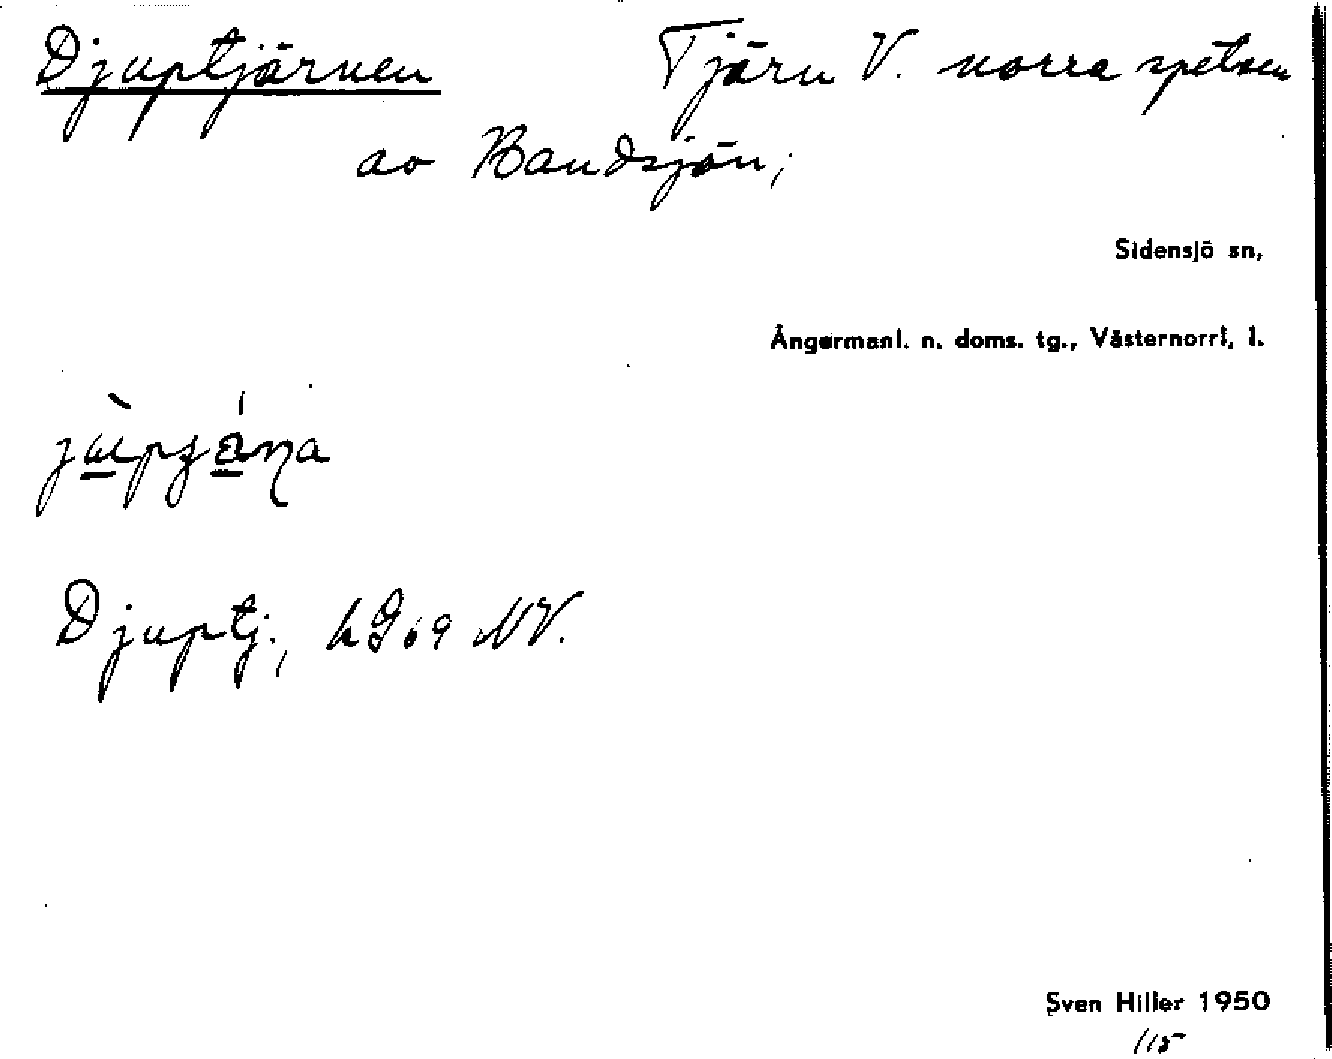 Djuptjärnen Tjärn V. norra spetsen
av Bandsjön;
Sidensjö sn,
Ångermanl. n. doms. tg., Västernorrl. l.
Djuptj., NV.
Sven Hiller 1950
115